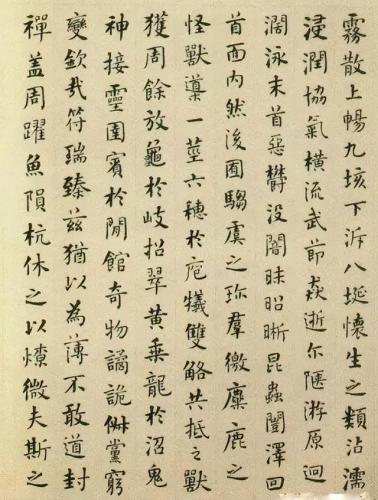 霧散上暢九垓下泝八埏懷生之類沾濡
浸潤協氣橫流武節猋逝尓陿游原迥
濶泳末首惡欝没闇昧昭晰昆蟲闓澤回
首面内然後囿騶虞之珎羣徼麋鹿之
怪獸䆃一莖六穗於庖犧雙觡共抵之獸
獲周餘放龜於岐招翠黄乗龍於沼鬼
神接靈圉賓於閒館奇物譎詭俶黨窮
變欽哉符瑞臻茲猶以為薄不敢道封
禪盖周躍魚隕杭休之以燎微夫斯之